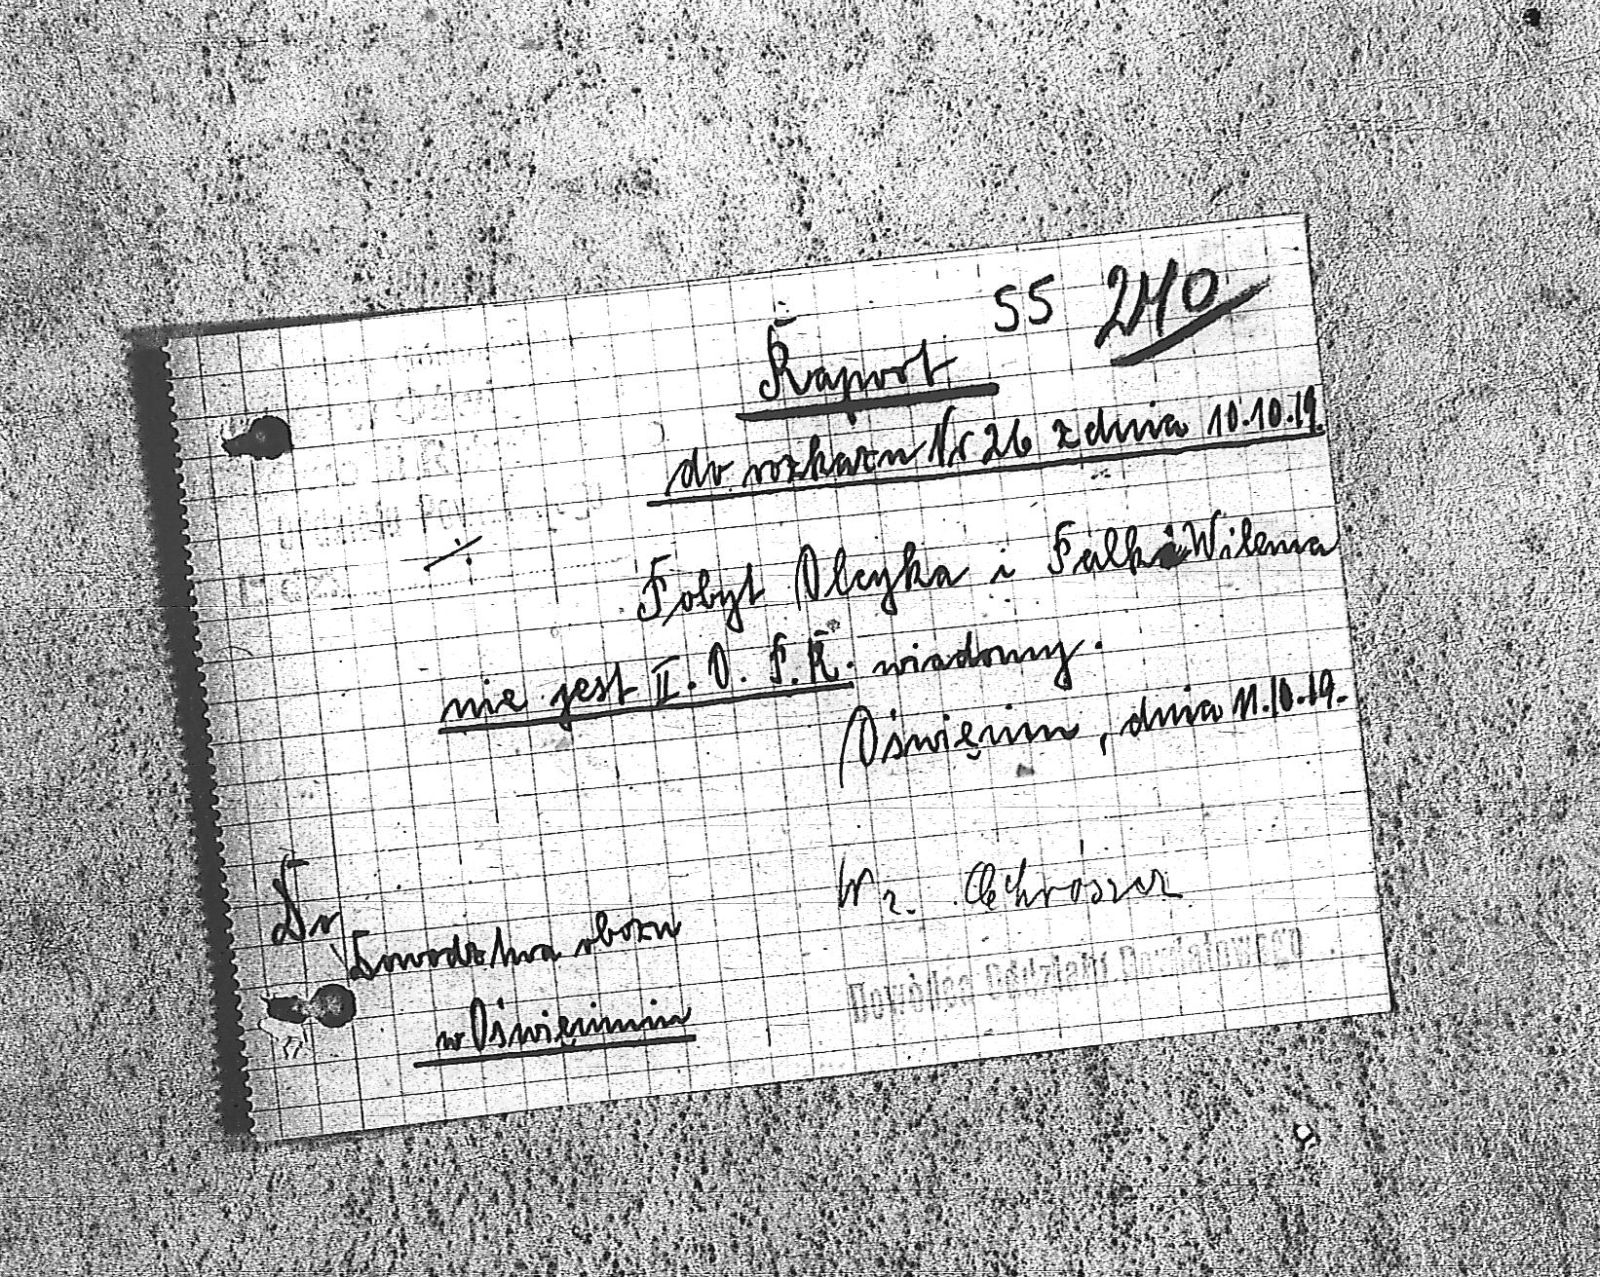 55 240
Raport
do rozkazu Nr 26 z dnia 10.10.19.
Pobyt Olcyka i Falka Wilema
nie jest II. O. P. K. wiadomy.
Oświęcim, dnia 11.10.19.
Do
Dowództwa obozu
w Oświęcimiu
Dowódca Oddziału Powiatowego